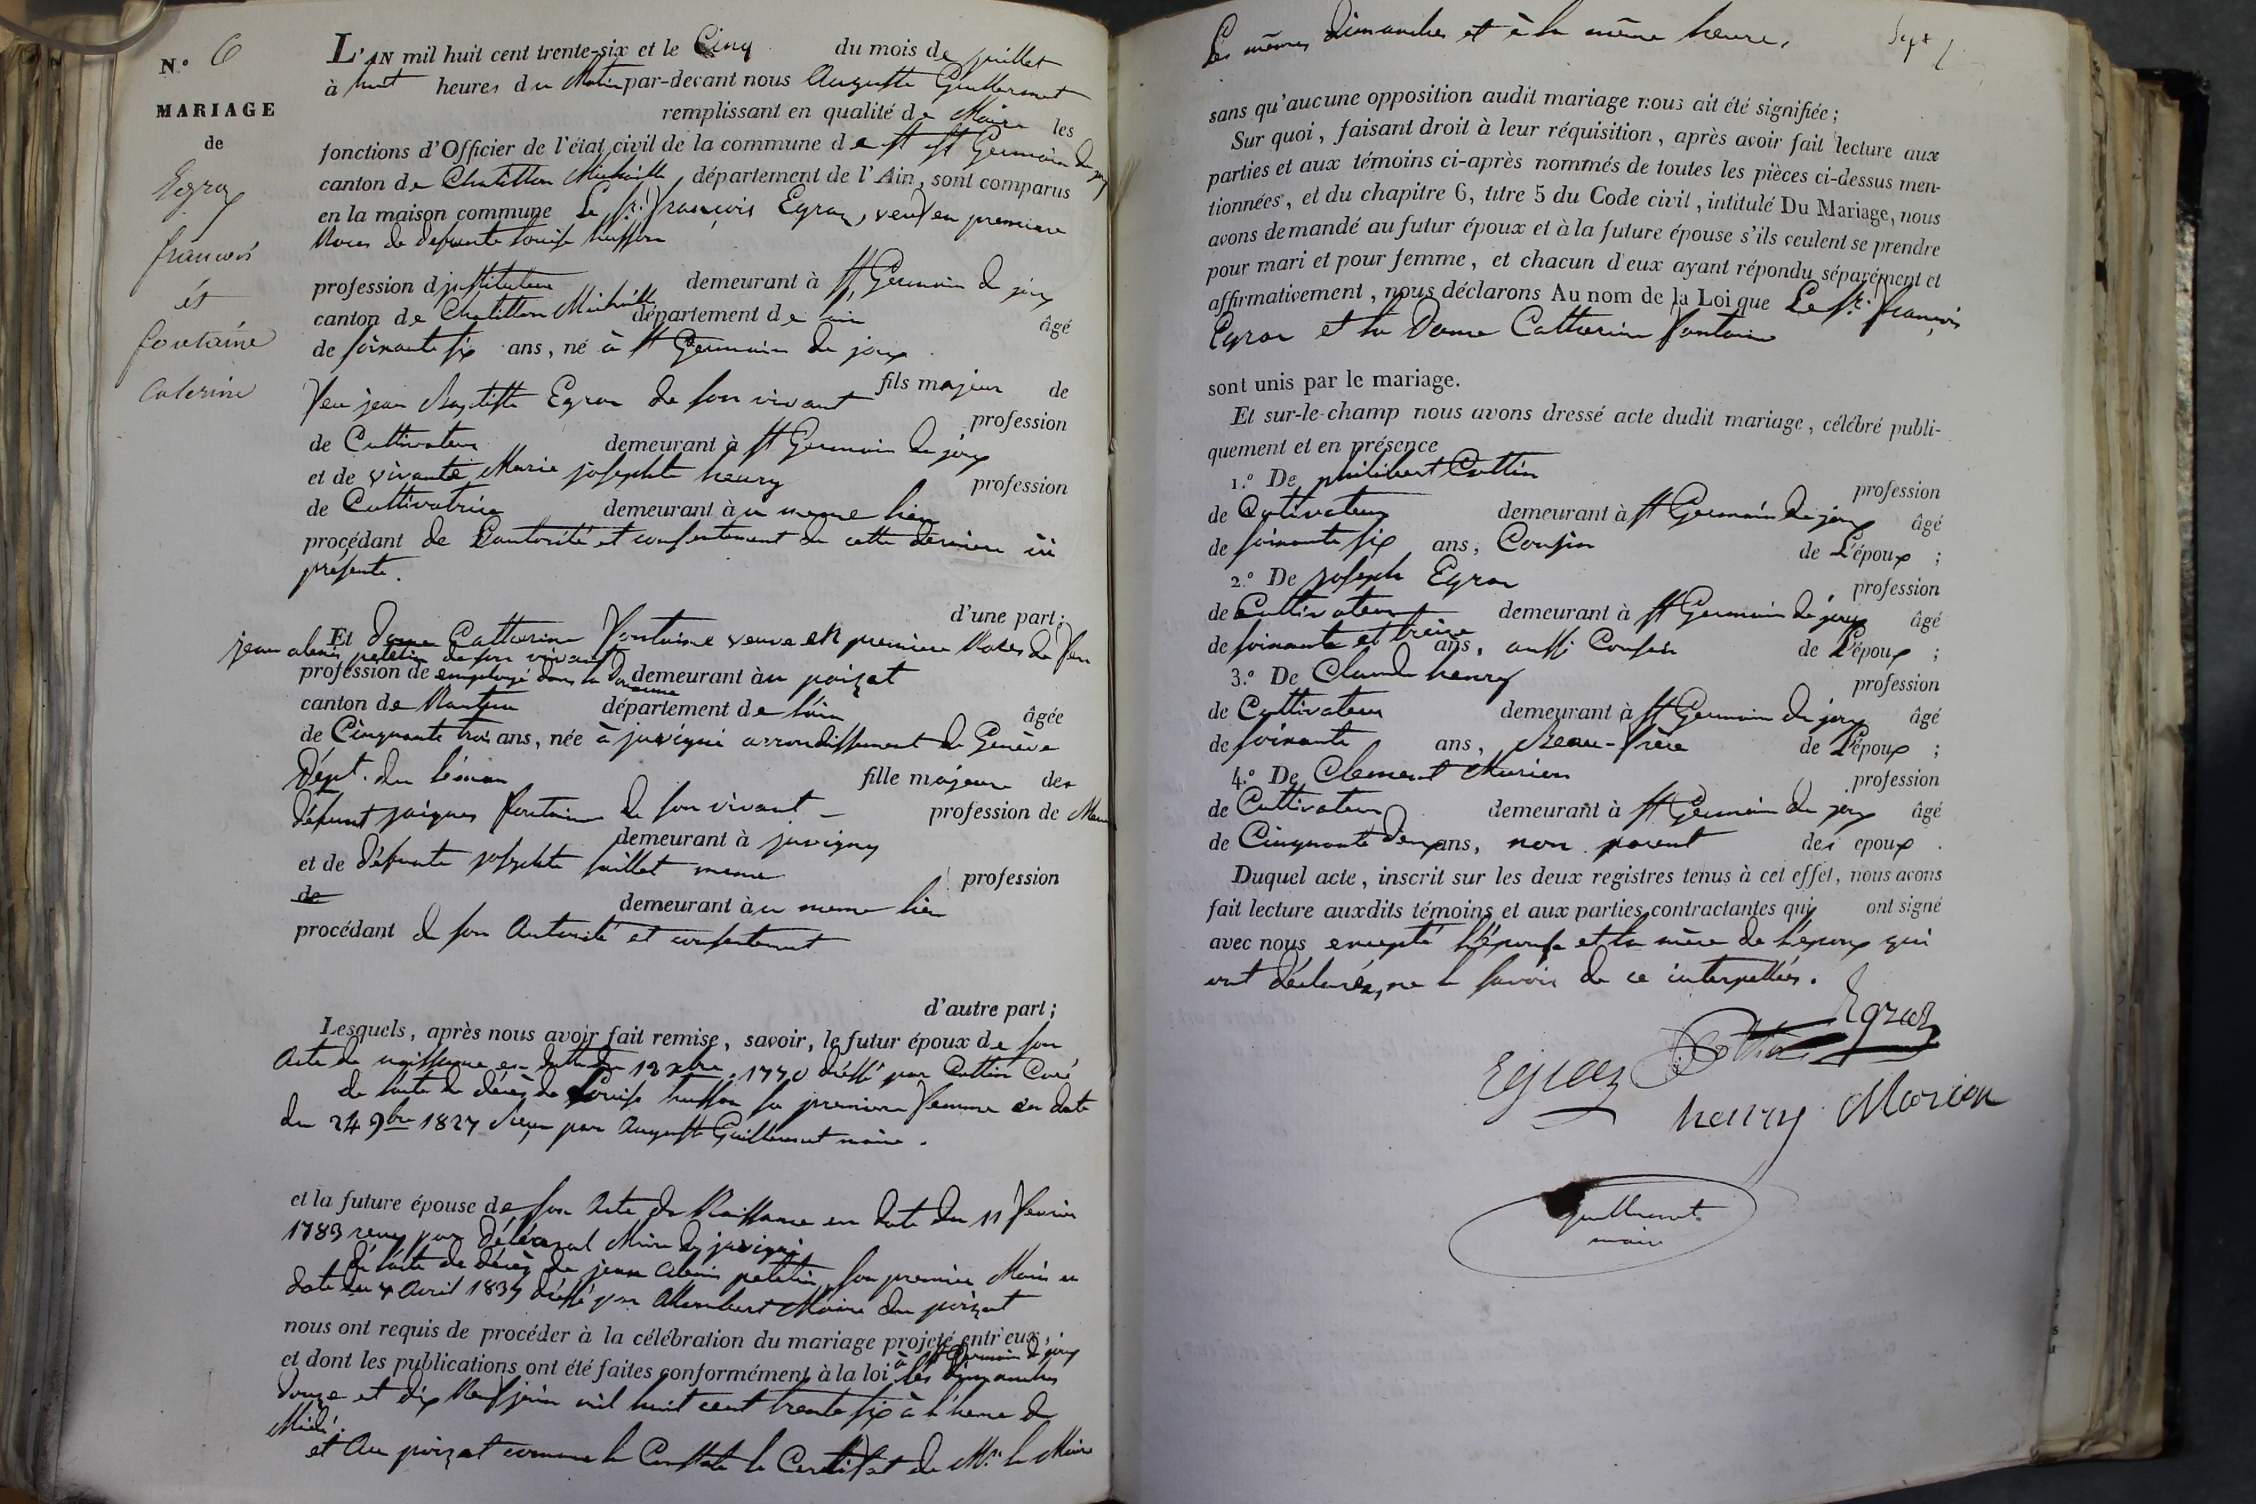 N.° 6
MARIAGE
de
Egraz
francois
et
fontaine
Caterine
L'AN mil huit cent trente-six et le Cinq du mois de juillet
à huit heures du Matin par-devant nous Auguste Guillermet
remplissant en qualité de Maire les
fonctions d'Officier de l'état civil de la commune de St Germain de joux
canton de Chatillon Michaille, département de l'Ain, sont comparus
en la maison commune Le Sr. François Egraz, veuf en premiere
Noces de defunte Louise husson
profession d'instituteur demeurant à St Germain de joux
canton de Chatillon Michaille département de l'ain âgé
de soixante six ans, né à St Germain de joux
fils majeur de
feu jean Baptiste Egraz de son vivant profession
de Cultivateur demeurant à St Germain de joux
et de vivante Marie josephte henry profession
de Cultivatrice demeurant au meme lieu
procédant de L'autorité et consentement de cette derniere ici
présente.
d'une part;
Et dame Catherine Fontaine veuve en premiere Noces de feu
jean alexis petetin de son vivant
profession de employé dans la Douanne demeurant au poizat
canton de Nantua département de l'ain âgée
de Cinquante trois ans, née à juvigni arrondissement de Genève
Dépt. du léman fille majeure des
défunt jaiques fontaine de son vivant profession de
demeurant à juvigny
et de défunte josephte meme profession
de demeurant au meme lieu
procédant de son Autorité et consentement
d'autre part;
Lesquels, après nous avoir fait remise, savoir, le futur époux de son
Acte de naissance en datte du 12 xbre 1770 dréssé par Cottin Curé
de l'acte de décès de Louise husson sa premiere femme en date
du 24 9bre 1827 par August Guillermet maire.
et la future épouse de son Acte de Naissance en date du 11 fevrier
1783 reçu par Maire de juvigni
de l'acte de décès de jean alexis petetin, son premier Mari en
date du 4 Avril 1834 dréssé par Maire du poizat
nous ont requis de procéder à la célébration du mariage projeté entr'eux,
et dont les publications ont été faites conformément à la loi à St Germain de joux les dimanches
douze et dix Neuf juin mil huit cent trente six à l'heure de
Midi.
et Au poizat comme le Constate le Certificat de Mr. le Maire
Les mêmes dimanches et à la même heure.
sans qu'aucune opposition audit mariage nous ait été signifiée;
Sur quoi, faisant droit à leur réquisition, après avoir fait lecture aux
parties et aux témoins ci-après nommés de toutes les pièces ci-dessus men-
tionnées, et du chapitre 6, titre 5 du Code civil, intitulé Du Mariage, nous
avons demandé au futur époux et à la future épouse s'ils veulent se prendre
pour mari et pour femme, et chacun d'eux ayant répondu séparément et
affirmativement, nous déclarons Au nom de la Loi que Le Sr. François
Egraz et la Dame Catherine Fontaine
sont unis par le mariage.
Et sur-le-champ nous avons dressé acte dudit mariage, célébré publi-
quement et en présence
1.° De philibert Cottin profession
de Cultivateur demeurant à St Germain de joux âgé
de soixante six ans, Cousin de L'époux;
2.° De Joseph Egraz profession
de Cultivateur demeurant à St Germain de joux âgé
de soixante et treize ans, aussi Cousin de L'époux;
3.° De Claude henry profession
de Cultivateur demeurant à St Germain de joux âgé
de soixante ans, Beau-frère de L'époux;
4.° De Clement Marion profession
de Cultivateur demeurant à St Germain de joux âgé
de Cinquante deux ans, non parent des epoux.
Duquel acte, inscrit sur les deux registres tenus à cet effet, nous avons
fait lecture auxdits témoins et aux parties contractantes qui ont signé
avec nous excepté L'épouse et la mère de L'epoux qui
ont déclarés, ne le savoir de ce interpellées.
Egraz
Egraz Cottin
henry Marion
Guillermet
maire